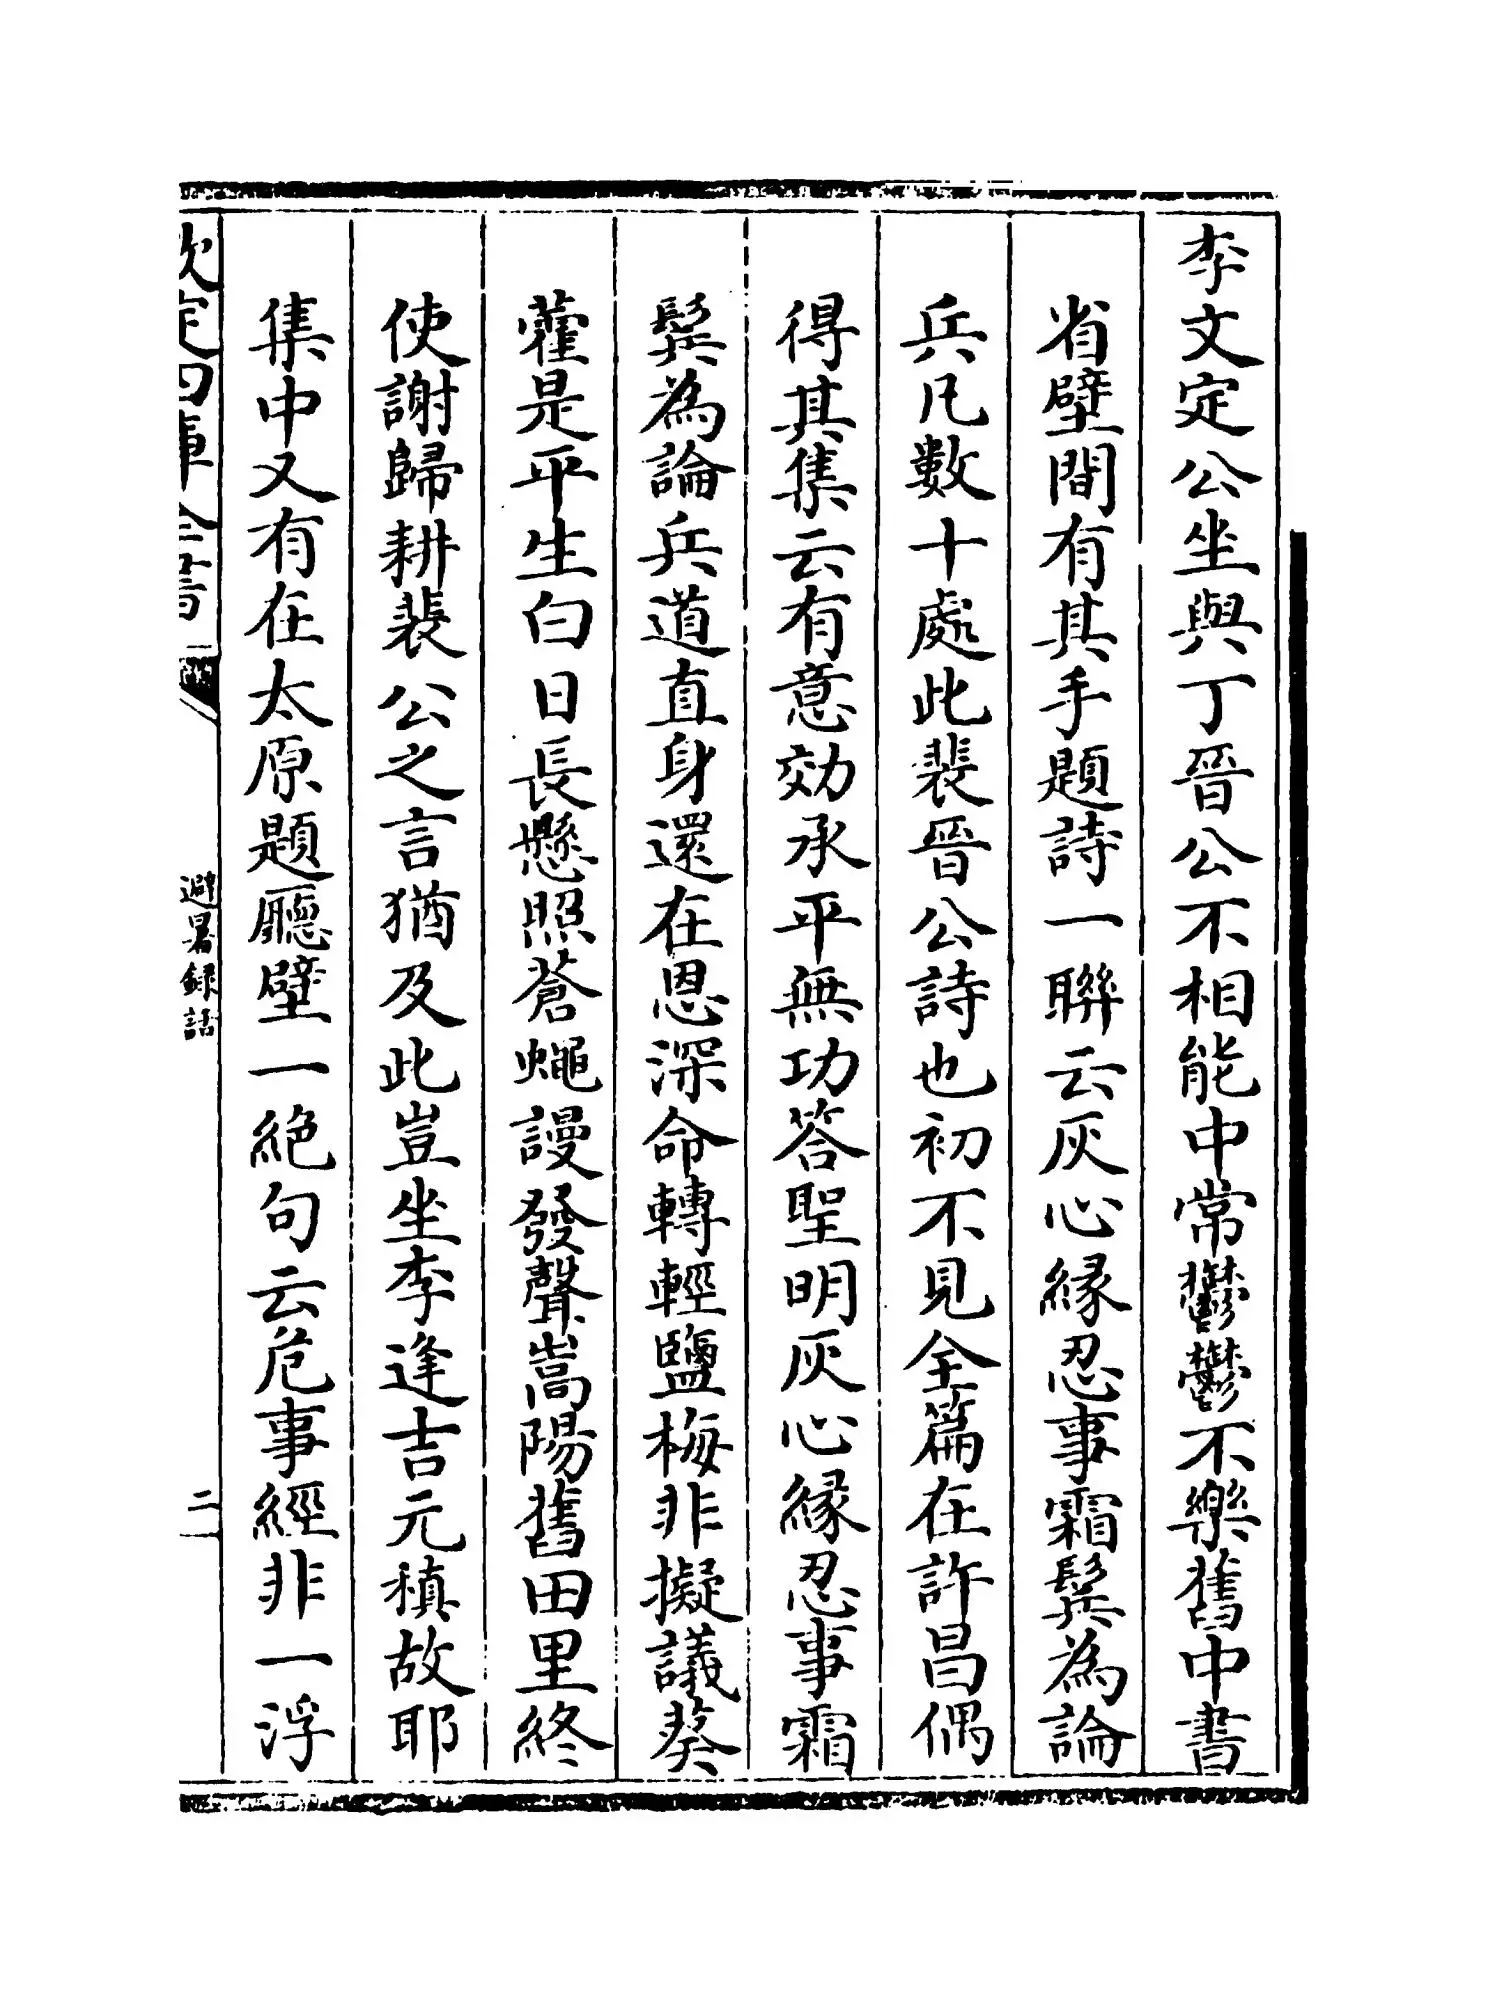 李文定公坐與丁晉公不相能中常鬱鬱不樂舊中書
省壁間有其手題詩一聯云灰心緣忍事霜鬢為論
兵凡數十處此裴晉公詩也初不見全篇在許昌偶
得其集云有意効承平無功答聖明灰心緣忍事霜
鬢為論兵道直身還在恩深命轉輕鹽梅非擬議葵
藿是平生白日長懸照蒼蠅謾發聲嵩陽舊田里終
使謝歸耕裴公之言猶及此豈坐李逢吉元稹故耶
集中又有在太原題廳壁一絕句云危事經非一浮
欽定四庫全書
避暑録話
二